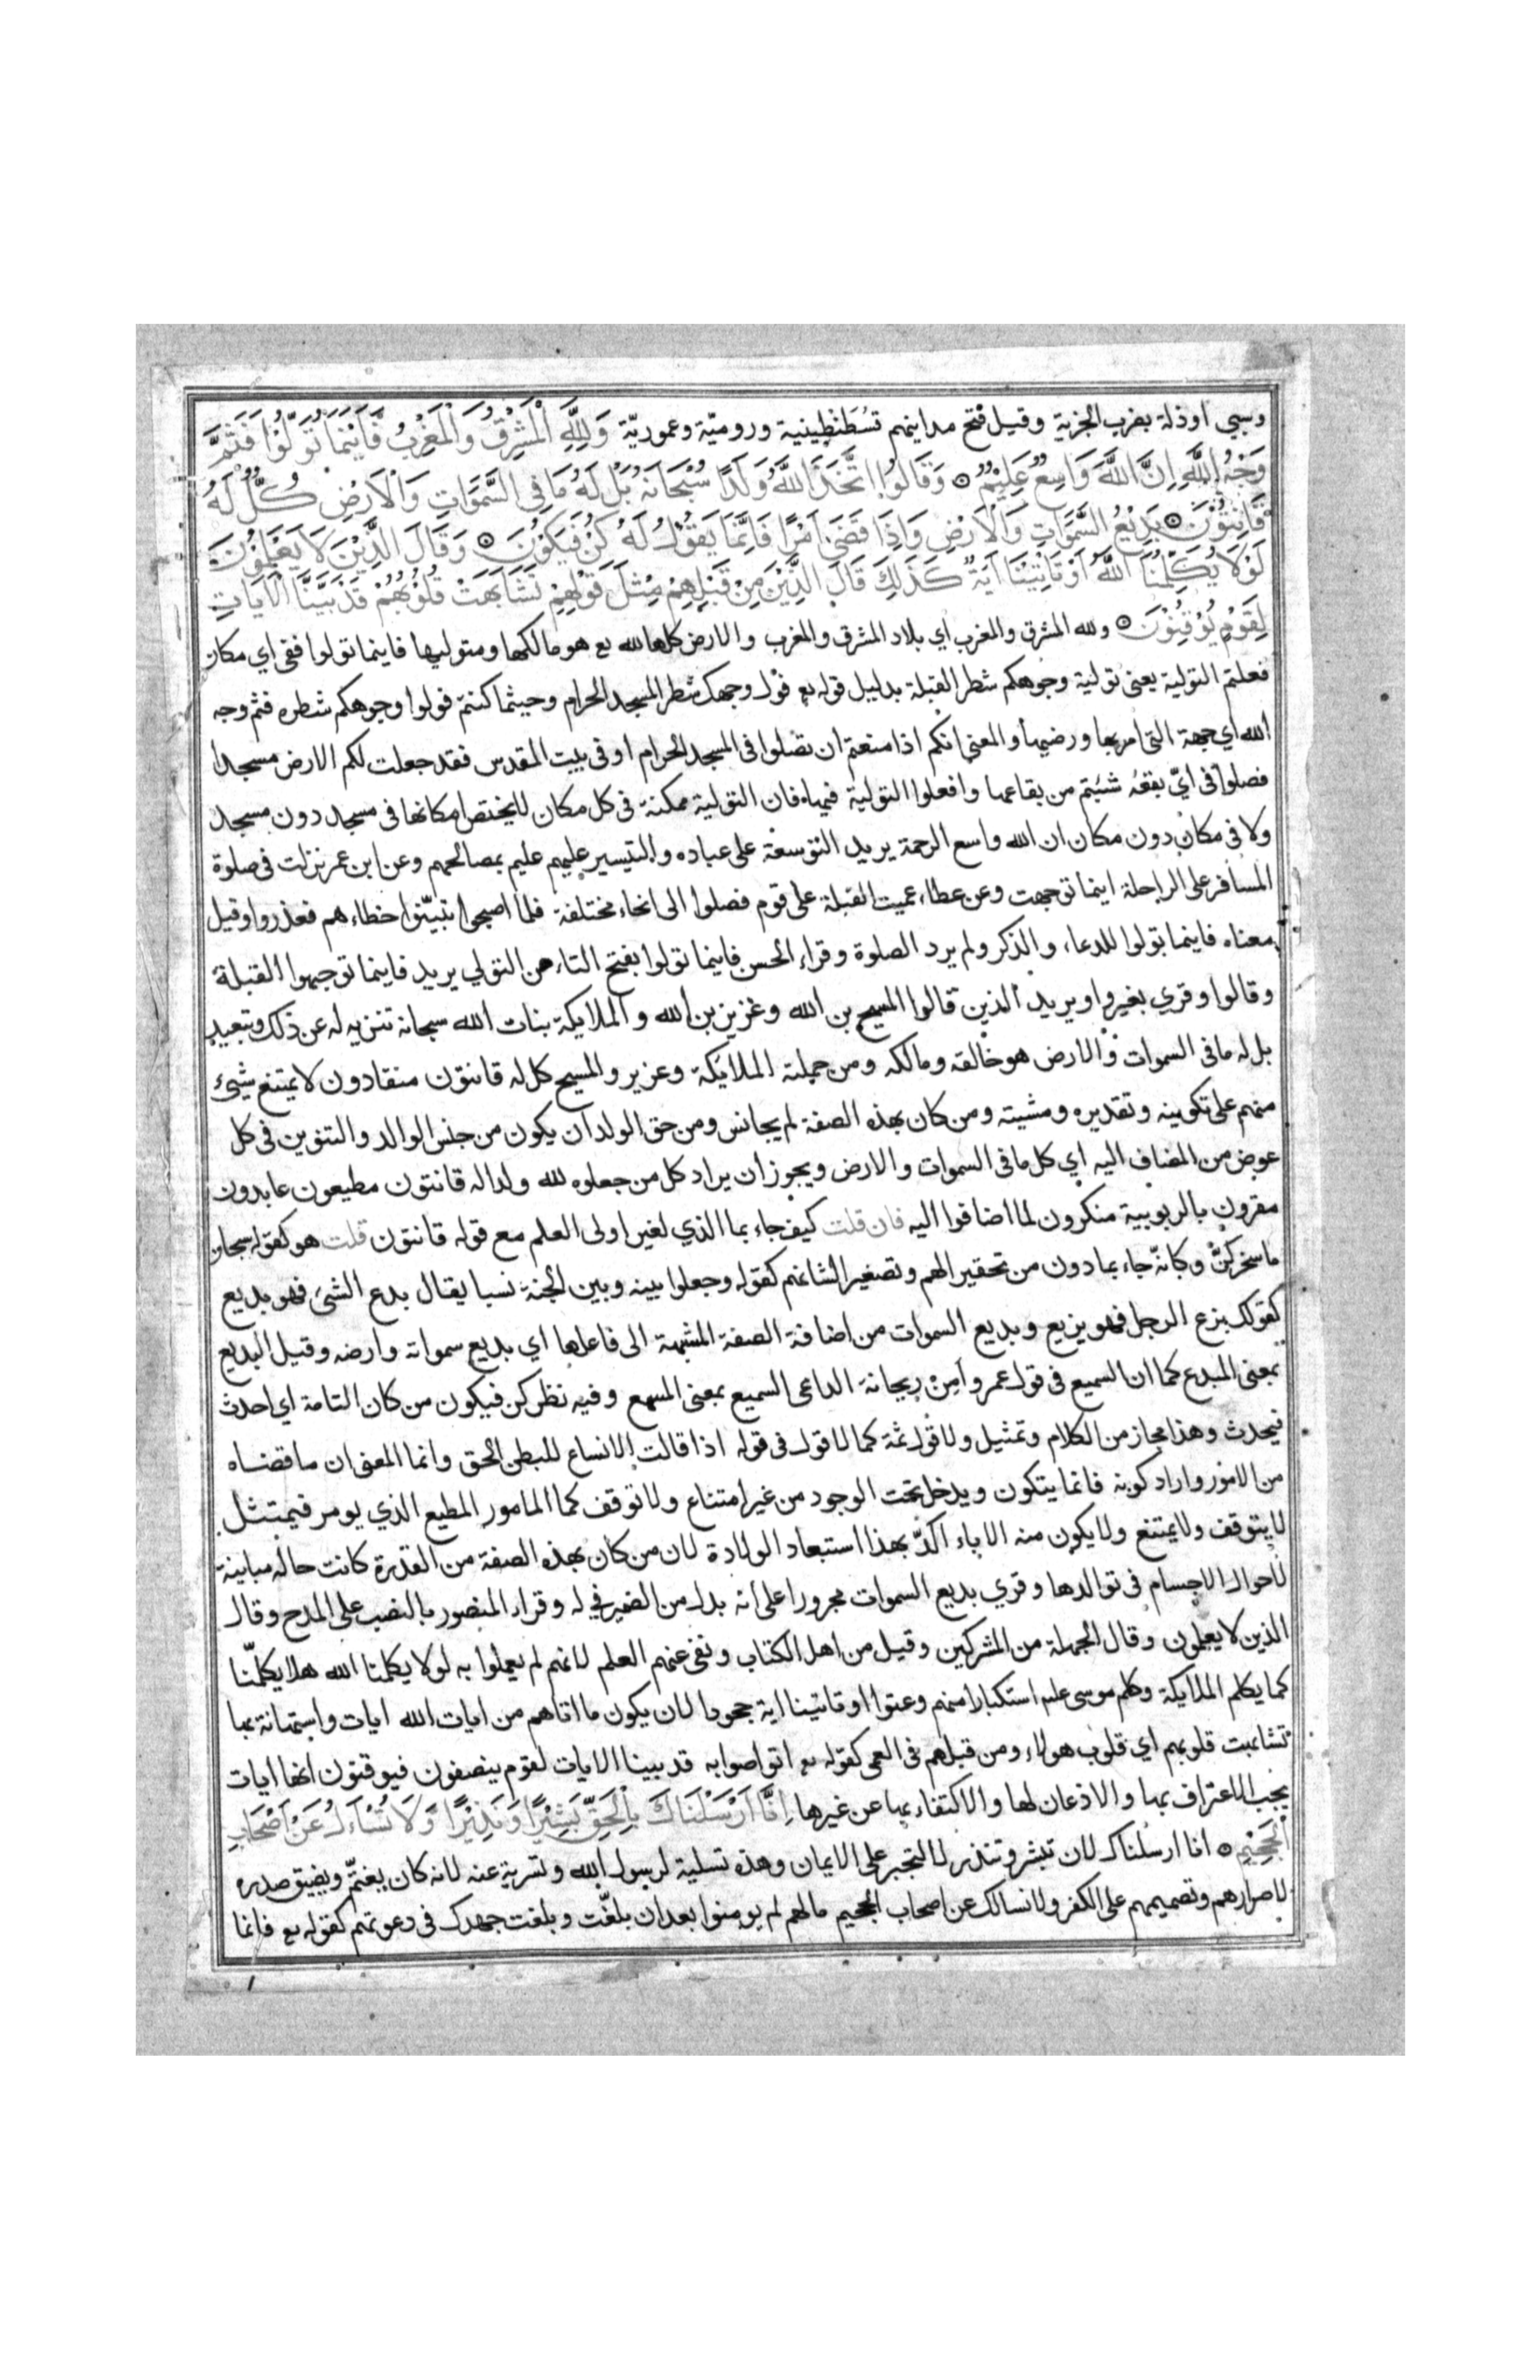 وسبي او ذلة بضرب الجزية وقيل فتح مداينهم قسطنطينية ورومية وعمورية وَلِلَّهِ الْمَشْرِقُ وَالْمَغْرِبُ فَاَيْنَمَا تُوَلُّوْا فَثَمَّ
وَجْهُ اللَّهِ اِنَّ اللَّهَ وَاسِعٌ عَلِيْمٌ وَقَالُوا اتَّخَذَ اللَّهُ وَلَدًا سُبْحَانَهُ بَلْ لَهُ مَا فِى السَّمَوَاتِ وَالْاَرْضِ كُلٌّ لَهُ
قَانِتُوْنَ بَدِيْعُ السَّمَوَاتِ وَالْاَرْضِ وَاِذَا قَضَى اَمْرًا فَاِنَّمَا يَقُوْلُ لَهُ كُنْ فَيَكُوْنُ وَقَالَ الَّذِيْنَ لَا يَعْلَمُوْنَ
لَوْلَا يُكَلِّمُنَا اللَّهُ اَوْ تَاْتِيْنَا اٰيَةٌ كَذَلِكَ قَالَ الَّذِيْنَ مِنْ قَبْلِهِمْ مِثْلَ قَوْلِهِمْ تَشَابَهَتْ قُلُوْبُهُمْ قَدْ بَيَّنَّا الْاٰيَاتِ
لِقَوْمٍ يُوْقِنُوْنَ ولله المشرق والمغرب اي بلاد المشرق والمغرب والارض كلها لله تع هو مالكها ومتوليها فاينما تولوا ففى اي مكان
فعلتم التولية يعنى تولية وجوهكم شطر القبلة بدليل قوله تع فول وجهك شطر المسجد الحرام وحيثما كنتم فولوا وجوهكم شطره فثم وجه
الله اي جهته التى امر بها ورضيها والمعنى انكم اذا منعتم ان تصلوا فى المسجد الحرام او فى بيت المقدس فقد جعلت لكم الارض مسجدا
فصلوا فى اي بقعة شئتم من بقاعها وافعلوا التولية فيها فان التولية ممكنة فى كل مكان لا يختص امكانها فى مسجد دون مسجد
ولا فى مكان دون مكان ان الله واسع الرحمة يريد التوسعة على عباده والتيسير عليهم عليم بمصالحهم وعن ابن عمر نزلت فى صلوة
المسافر على الراحلة اينما توجهت وعن عطاء عميت القبلة على قوم فصلوا الى انحاء مختلفة فلما اصبحوا تبينوا خطاءهم فعذروا وقيل
معناه فاينما تولوا للدعاء والذكر ولم يرد الصلوة وقراء الحسن فاينما تولوا بفتح التاء من التولي يريد فاينما توجهوا القبلة
وقالوا وقري بغير واو يريد الذين قالوا المسيح بن الله وعزيز بن الله والملايكة بنات الله سبحانه تنزيه له عن ذلك وتبعيد
بل له ما فى السموات والارض هو خالقه ومالكه ومن جملته الملايكة وعزير والمسيح كل له قانتون منقادون لا يمتنع شيء
منهم على تكوينه وتقديره ومشيته ومن كان بهذه الصفة لم يجانس ومن حق الولد ان يكون من جنس الوالد والتنوين فى كل
عوض من المضاف اليه اي كل ما فى السموات والارض ويجوز ان يراد كل من جعلوه لله ولدا له قانتون مطيعون عابدون
مقرون بالربوبية منكرون لما اضافوا اليه فان قلت كيف جاء بما الذي لغير اولى العلم مع قوله قانتون قلت هو كقوله سبحان
ما سخركن وكانه جاء بما دون من تحقيرا لهم وتصغيرا لشانهم كقوله وجعلوا بينه وبين الجنة نسبا يقال بدع الشئ فهو بديع
كقولك بزع الرجل فهو بزيع وبديع السموات من اضافة الصفة المشبهة الى فاعلها اي بديع سمواته وارضه وقيل البديع
بمعنى المبدع كما ان السميع فى قول عمرو اَمِنْ ريحانة الداعى السميع بمعنى المسمع وفيه نظر كن فيكون من كان التامة اي احدث
فيحدث وهذا مجاز من الكلام وتمثيل ولا قول ثمة كما لا قول فى قوله اذا قالت الانساع للبطن الحق وانما المعنى ان ما قضاه
من الامور واراد كونه فانما يتكون ويدخل تحت الوجود من غير امتناع ولا توقف كما المامور المطيع الذي يومر فيمتثل
لا يتوقف ولا يمتنع ولا يكون منه الاباء اكد بهذا استبعاد الولادة لان من كان بهذه الصفة من القدرة كانت حاله مباينة
لاحوال الاجسام فى توالدها وقري بديع السموات مجرورا على انه بدل من الضمير في له وقراء المنصور بالنصب على المدح وقال
الذين لا يعلمون وقال الجهلة من المشركين وقيل من اهل الكتاب ونفى عنهم العلم لانهم لم يعملوا به لولا يكلمنا الله هلا يكلمنا
كما يكلم الملايكة وكلم موسى علىه استكبارا منهم وعتوا او تاتينا اية جحودا لان يكون ما اتاهم من ايات الله ايات واستهانة بها
تشابهت قلوبهم اي قلوب هولاء ومن قبلهم فى العمى كقوله تع اتواصوا به قد بينا الايات لقوم ينصفون فيوقنون انها ايات
يجب الاعتراف بها والاذعان لها والاكتفاء بها عن غيرها اِنَّا اَرْسَلْنَاكَ بِالْحَقِّ بَشِيْرًا وَنَذِيْرًا وَلَا تُسْاَلُ عَنْ اَصْحَابِ
الْجَحِيْمِ انا ارسلناك لان تبشر وتنذر لا لتجبر على الايمان وهذه تسلية لرسول الله وتسرية عنه لانه كان يغتم ويضيق صدره
لاصرارهم وتصميمهم على الكفر ولا نسالك عن اصحاب الجحيم ما لهم لم يومنوا بعد ان بلغت وبلغت جهدك فى دعوتهم كقوله تع فانما